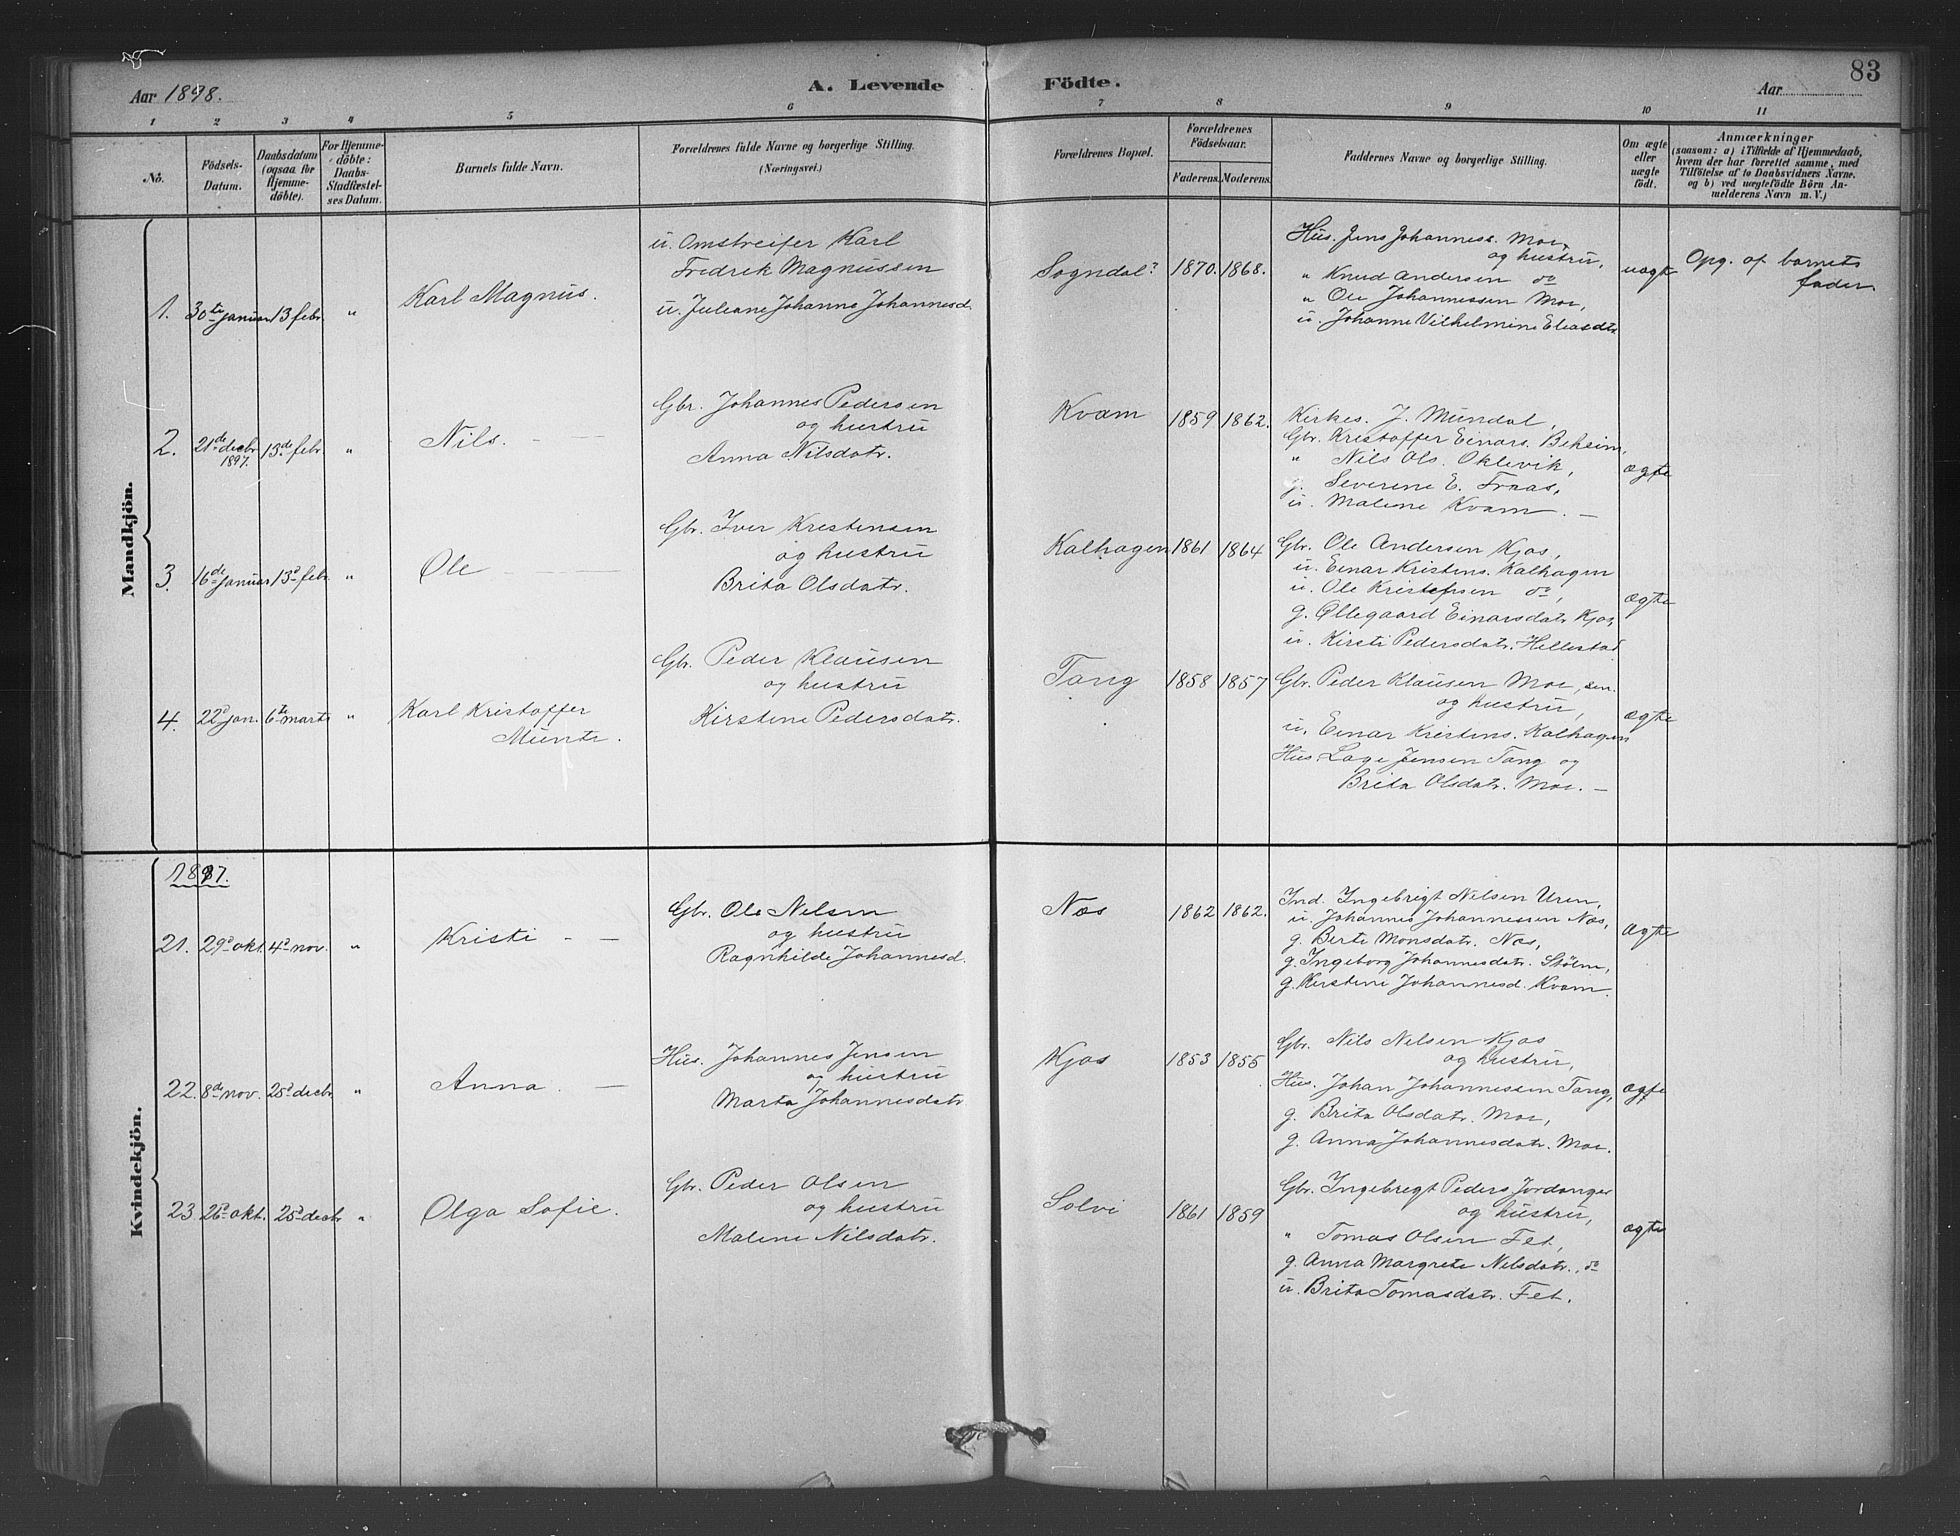 83
Aar 1898.
A. Levende Födte.
Aar
1 2 3 4 5 6 7 8 9 10 11
No.
Födsels-Datum.
Daabsdatum (ogsaa for Hjemme-döbte).
For Hjemme-döbte: Daabs-Stadfæstel-ses Datum.
Barnets fulde Navn.
Forældrenes fulde Navne og borgerlige Stilling.
(Næringsvei.)
Forældrenes Bopæl.
Forældrenes Födselsaar.
Faderens. Moderens.
Faddernes Navne og borgerlige Stilling.
Om ægte eller uægte födt.
Anmærkninger
(saasom: a) i Tilfælde af Hjemmedaab,
hvem der har forrettet samme, med
Tilföielse af to Daabsvidners Navne.
og b) ved uægtefödte Börn An-
melderens Navn m. V.)
Mandkjön.
1. 30te januar 13 febr. " Karl Magnus.
u. Omstreifer Karl
Fredrik Magnussen
u. Juliane Johanne Johannesd.
Sogndal? 1870. 1868.
Hus. Jens Johanness. Moe,
og hustru,
" Knud Andersen do
" Ole Johannessen Moe,
u. Johanne Vilhelmine Eliasdtr.
uægte
Opg. af barnets
fader.
2. 21de decbr. 1897. 13de febr. " Nils.
Gbr. Johannes Pedersen
og hustru
Anna Nilsdatr.
Kvam 1859 1862.
Kirkes. J. Mundal,
Gbr. Kristoffer Einars. Beheim,
" Nils Ols. Oklevik,
g. Severine E. Fraas,
u. Malene Kvam.
ægte
3. 16de januar 13d febr. " Ole
Gbr. Iver Kristensen
og hustru
Brita Olsdatr.
Kalhagen 1861 1864
Gbr. Ole Andersen Kjos,
u. Einar Kristens. Kalhagen
u. Ole Kristensen do,
g. Øllegaard Einarsdatr. Kjos,
u. Kirsti Pedersdatr. Hellestad
ægte
4. 22d jan. 6te marts " Karl Kristoffer
Munte.
Gbr. Peder Klausen
og hustru
Kirstine Pedersdatr.
Tang 1858 1857
Gbr. Peder Klausen Moe, sen.
og hustru,
u. Einar Kristens. Kalhagen
Hus. Lage Jensen Tang og
Brita Olsdatr. Moe.
ægte
Kvindekjön.
1897.
21. 29d okt. 4d nov. " Kristi
Gbr. Ole Nelsen
og hustru
Ragnhilde Johannesd.
Næs 1862 1862.
Ind. Ingebrigt Nilsen Uren,
u. Johannes Johannessen Næs,
g. Berte Monsdatr. Næs,
g. Ingeborg Johannesdatr. Stølne,
g. Kirstine Johannesd. Kvam.
ægte
22. 8de nov. 25d decbr. " Anna.
Hus. Johannes Jensen
og hustru
Marta Johannesdatr.
Kjos 1853 1855
Gbr. Nils Nelsen Kjos
og hustru,
Hus. Johan Johannessen Tang,
g. Brita Olsdatr. Moe,
g. Anna Johannesdatr. Moe.
ægte
23. 26d okt. 25d decbr. " Olga Sofie.
Gbr. Peder Olsen
og hustru
Malene Nilsdatr.
Solvi 1861 1859
Gbr. Ingebregt Peders. Jordanger
og hustru,
" Tomas Olsen Fet,
g. Anna Margrete Nilsdatr. do
u. Brita Tomasdatr. Fet.
ægte